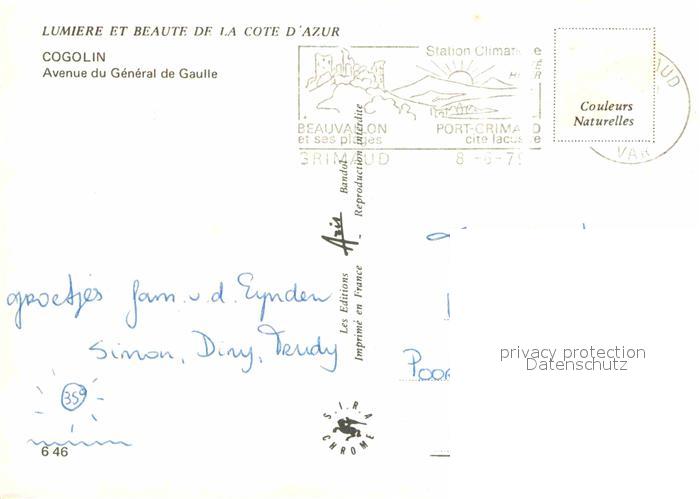 LUMIERE ET BEAUTE DE LA COTE D'AZUR
COGOLIN
Avenue du Général de Gaulle
Station Climat e
BEAUVALLON
et ses plages
PORT-GRIMAUD
cité lacustre
GRIMAUD
8 -6-79
AUD
VAR
Couleurs
Naturelles
Les Editions Aris Bandol
Imprimé en France Reproduction interdite
groetjes fam. v. d. Eynden
Simon, Diny, Trudy
35°
6 46
S.I.R.A.
CHROME
Poo
privacy protection
Datenschutz